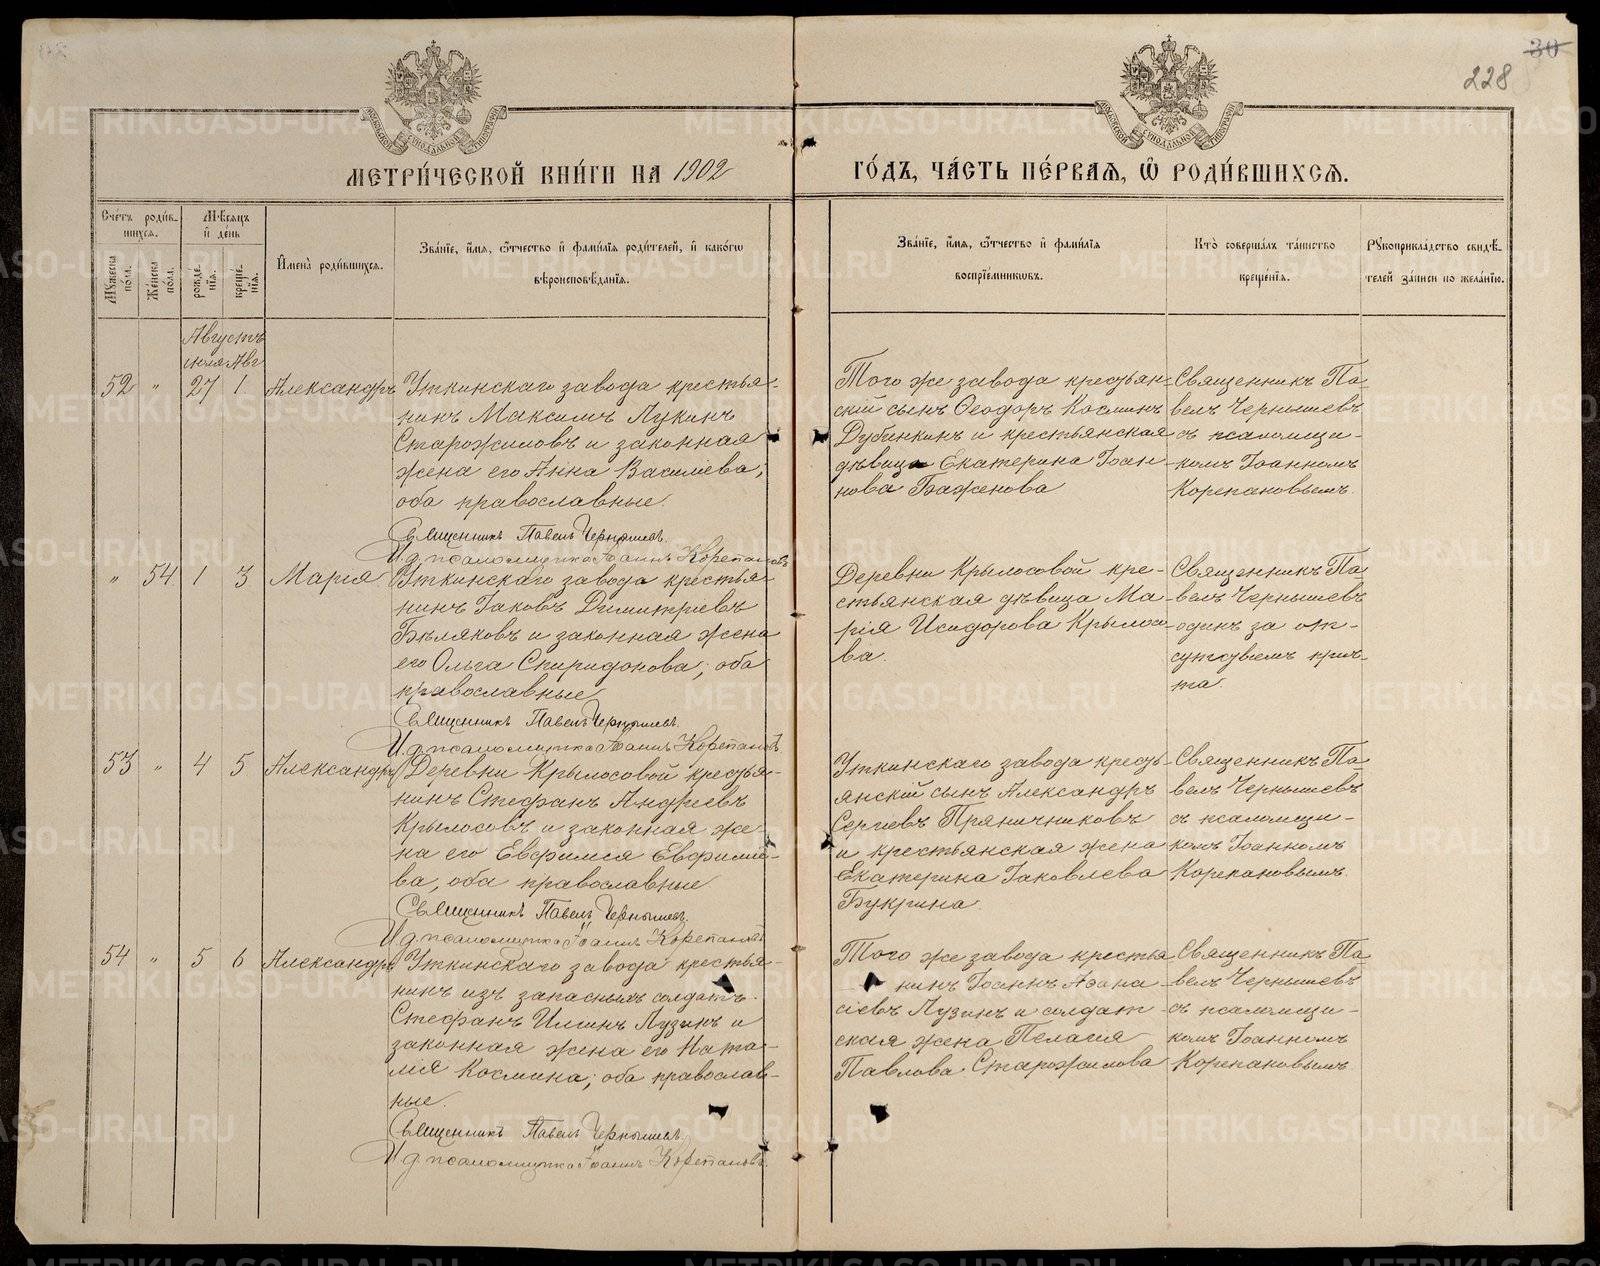 30
228
МЕТРИ́ЧЕСКОЙ КНИ́ГИ НА 1902
ГО́ДЪ, ЧА́СТЬ ПЕ́РВАѦ, Ѡ҆ РОДИ́ВШИХСѦ.
Сче́тъ роди́в-
шихся.
Мѣ́сяцъ
и҆ де́нь
Му́жеска по́ла.
Же́нска по́ла.
рожде́-
нїя.
креще́-
нїя.
И҆мена̀ роди́вшихся.
Зва́нїе, и҆́мя, ѻ҆́тчество и҆ фами́лїя роди́телей, и҆ како́гѡ
вѣроисповѣ́данїя.
Зва́нїе, и҆́мя, ѻ҆́тчество и҆ фами́лїя
воспрїе́мникѡвъ.
Кто̀ соверша́лъ та́инство
креще́нїя.
Рꙋкоприкла́дство свидѣ́-
телей за́писи по жела́нїю.
Августъ
июля Авг
52 " 27 1 Александръ
Уткинскаго завода крестья-
нинъ Максимъ Лукинъ
Старожиловъ и законная
жена его Анна Василіева;
оба православные.
Священникъ Павелъ Чернышевъ.
И.д. псаломщика Іоаннъ Корепановъ
Того же завода крестьян-
скій сынъ Ѳеодоръ Косминъ
Дубинкинъ и крестьянская
дѣвица Екатерина Іоан-
нова Баженова
Священникъ Па-
велъ Чернышевъ
съ псаломщи-
комъ Іоанномъ
Корепановымъ
" 54 1 3 Марія
Уткинскаго завода крестья-
нинъ Іаковъ Димитріевъ
Бѣляковъ и законная жена
его Ольга Спиридонова; оба
православные
Священникъ Павелъ Чернышевъ.
И.д. псаломщика Іоаннъ Корепановъ
Деревни Крылосовой кре-
стьянская дѣвица Ма-
рія Исидорова Крылосо-
ва.
Священникъ Па-
велъ Чернышевъ
одинъ за от-
сутствіемъ прич-
та.
53 " 4 5 Александръ
Деревни Крылосовой крестья-
нинъ Стефанъ Андреевъ
Крылосовъ и законная же-
на его Евфимія Евфиміе-
ва, оба православные
Священникъ Павелъ Чернышевъ.
И.д. псаломщика Іоаннъ Корепановъ
Уткинскаго завода кресть-
янскій сынъ Александръ
Сергіевъ Пряничниковъ
и крестьянская жена
Екатерина Іаковлева
Букрина.
Священникъ Па-
велъ Чернышевъ
съ псаломщи-
комъ Іоанномъ
Корепановымъ.
54 " 5 6 Александръ
Уткинскаго завода крестья-
нинъ изъ запасныхъ солдатъ
Стефанъ Илиинъ Лузинъ и
законная жена его Ната-
лія Космина; оба православ-
ные.
Священникъ Павелъ Чернышевъ.
И.д. псаломщика Іоаннъ Корепановъ.
Того же завода крестья
нинъ Іоаннъ Аѳана-
сіевъ Лузинъ и солдат-
ская жена Пелагія
Павлова Старожилова
Священникъ Па-
велъ Чернышевъ
съ псаломщи-
комъ Іоанномъ
Корепановымъ
METRIKI.GASO-URAL.RU